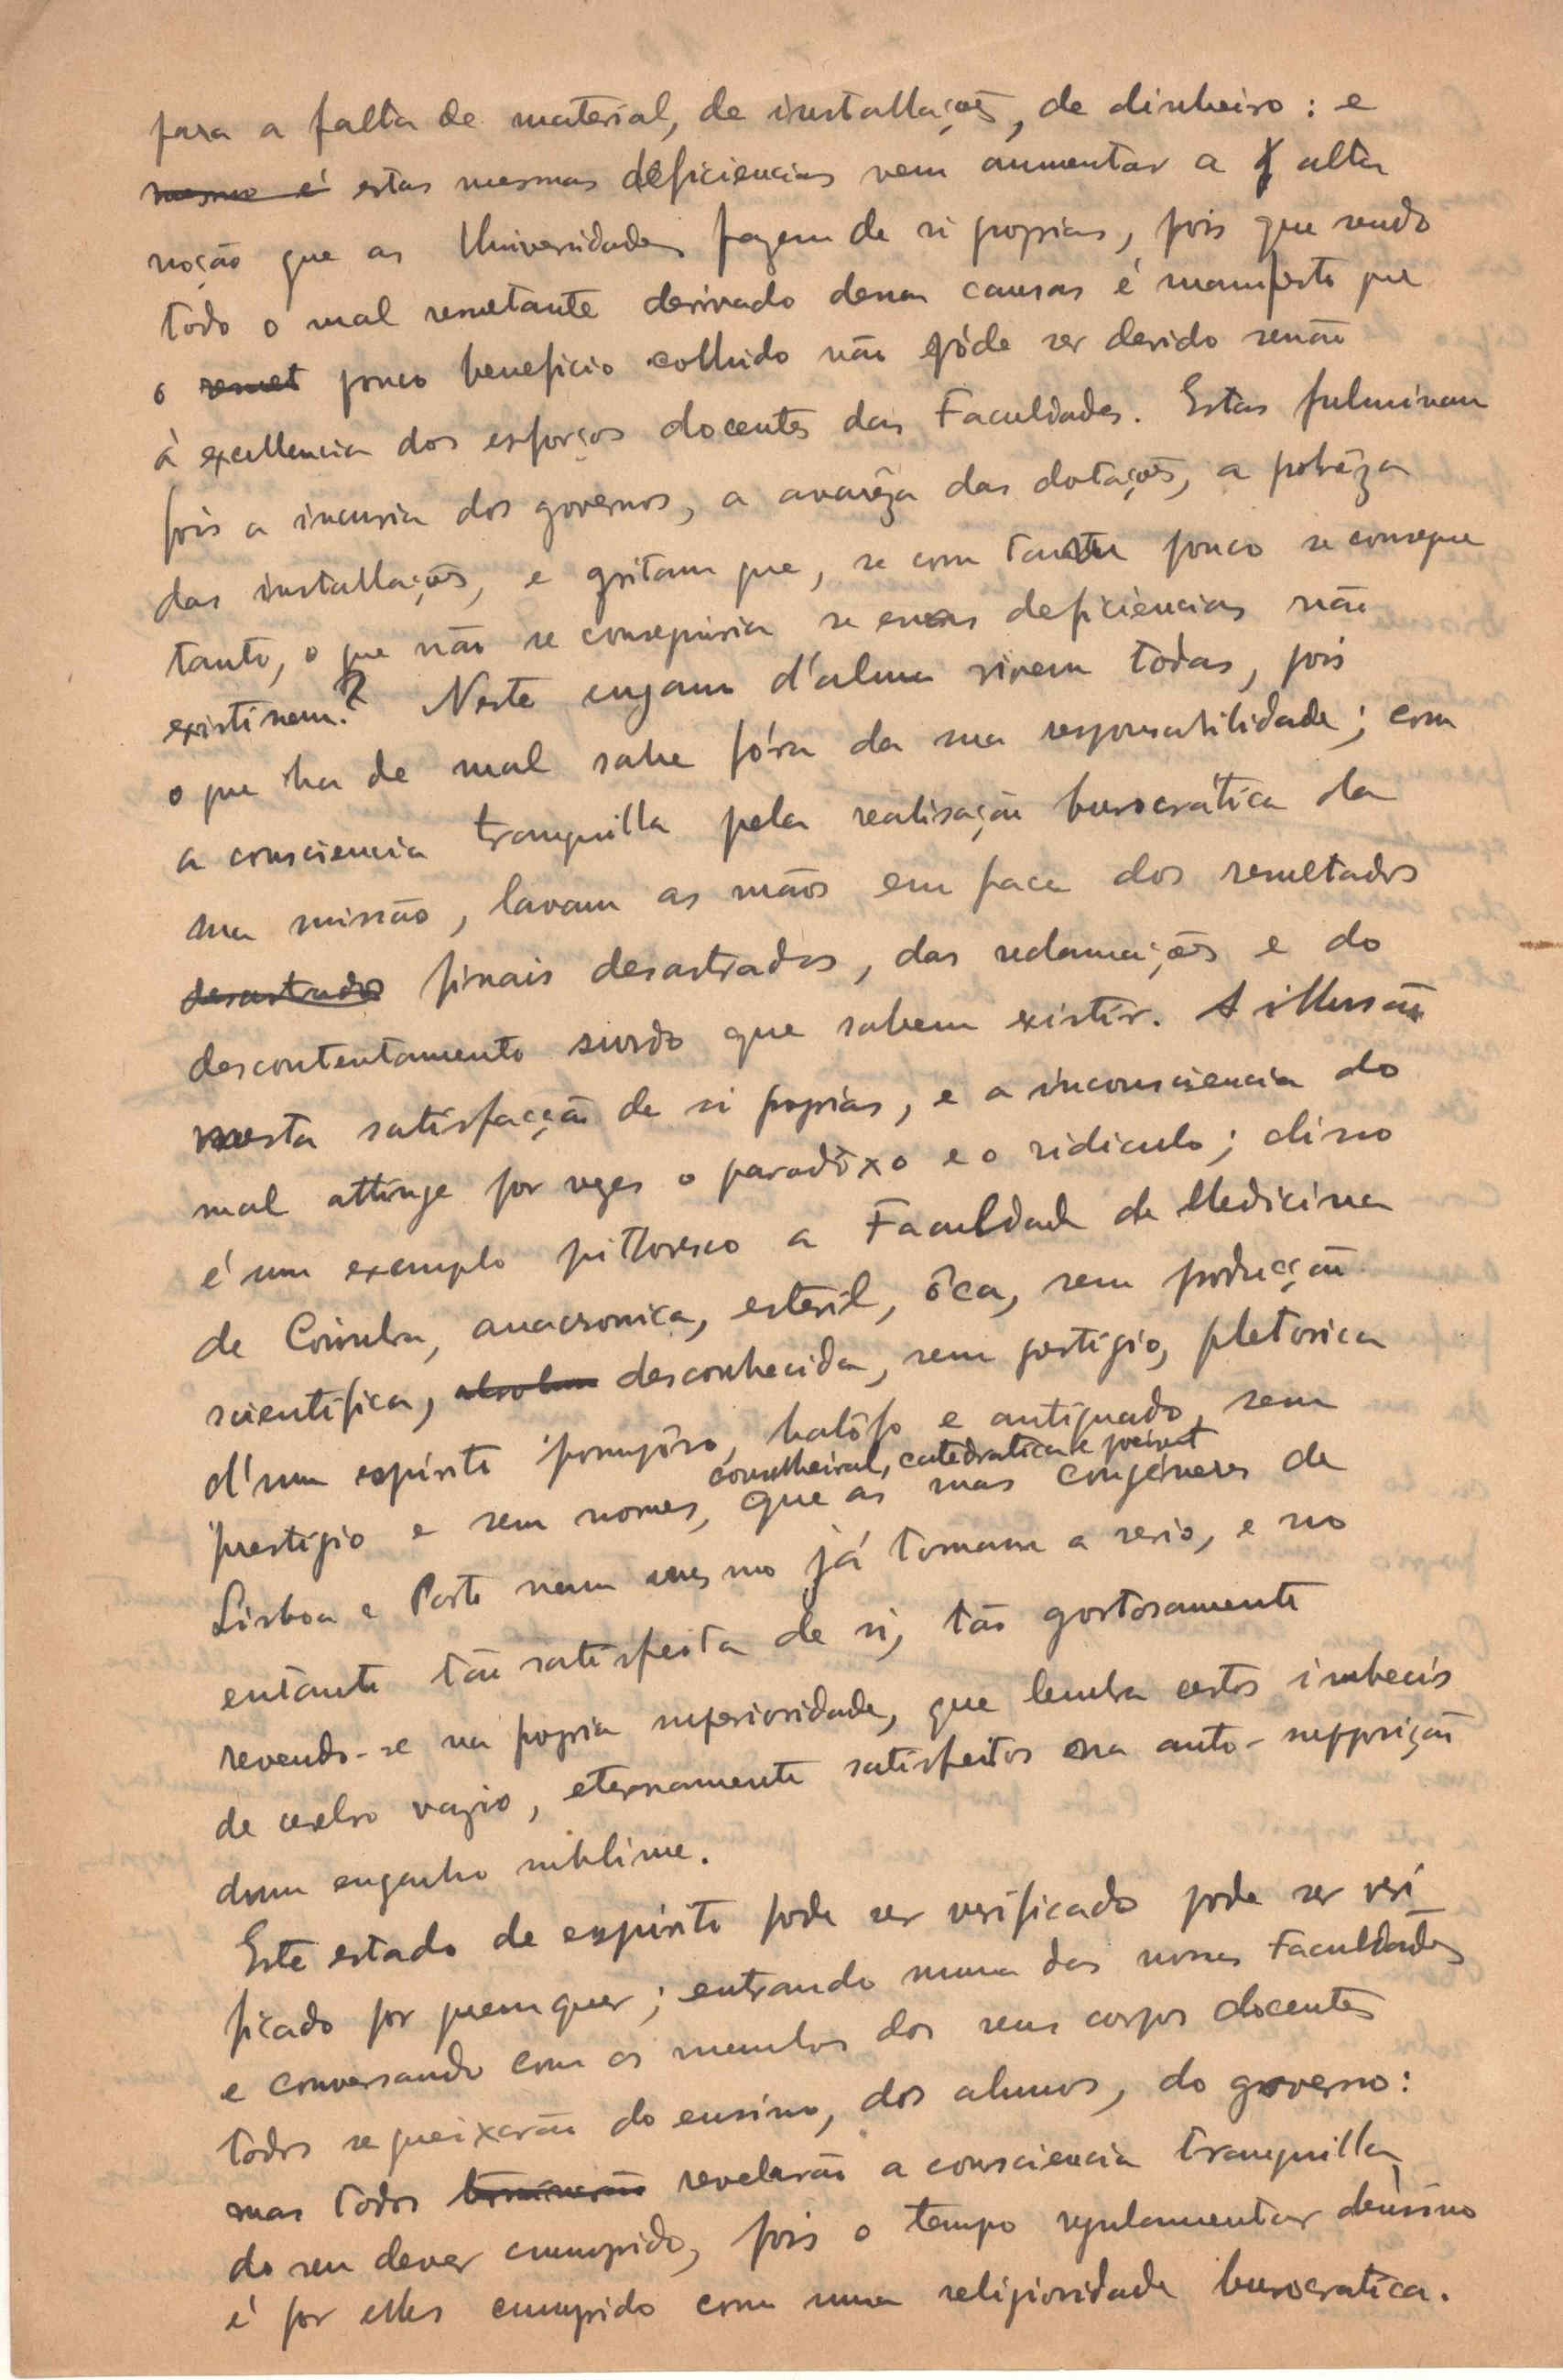 para a falta de material, de installações, de dinheiro: e
mesmo é estas mesmas deficiencias vem aumentar a alta
noção que as Universidades fazem de si proprias, pois que sendo
todo o mal resultante derivado dessas causas é manifesto que
o result pouco beneficio colhido não póde ser devido senão
á excellencia dos esforços docentes das Faculdades. Estas fulminam
pois a incuria dos governos, a avarêza das dotações, a pobrêza
das installações, e gritam que, se com tanto pouco se consegue
tanto, o que não se conseguiria se essas deficiencias não
existissem? Neste engano d'alma vivem todas, pois
o que ha de mal sahe fóra da sua responsabilidade; com
a consciencia tranquilla pela realisação burocrática da
sua missão, lavam as mãos em face dos resultados
desastrados finais desastrados, das reclamações e do
descontentamento surdo que sabem existir. A illusão
nesta satisfacção de si proprias, e a inconsciencia do
mal attinge por vezes o paradôxo e o ridiculo; disso
é um exemplo pittoresco a Faculdade de Medicina
de Coimbra, anacronica, esteril, ôca, sem producção
scientifica, desconhecida, sem prestigio, pletorica
d'um espirito pompôso, balôfo e antiquado, sem
conselheiral, catedratica e
prestigio e sem nomes, que as suas congéneres de
Lisboa e Porto nem mesmo já tomam a serio, e no
entanto tão satisfeita de si, tão gostosamente
revendo-se na propria superioridade, que lembra certos imbecis
de cerebro vazio, eternamente satisfeitos na auto-supposição
dum engenho sublime.
Este estado de espirito pode ser verificado pode ser veri
ficado por quem quer; entrando numa das nossas Faculdades
e conversando com os membros dos seus corpos docentes
todos se queixarão do ensino, dos alumos, do governo:
mas todos revelarão a consciencia tranquilla
do seu dever cumprido, pois o tempo regulamentar d'ensino
é por elles cumprido com uma religiosidade burocratica.